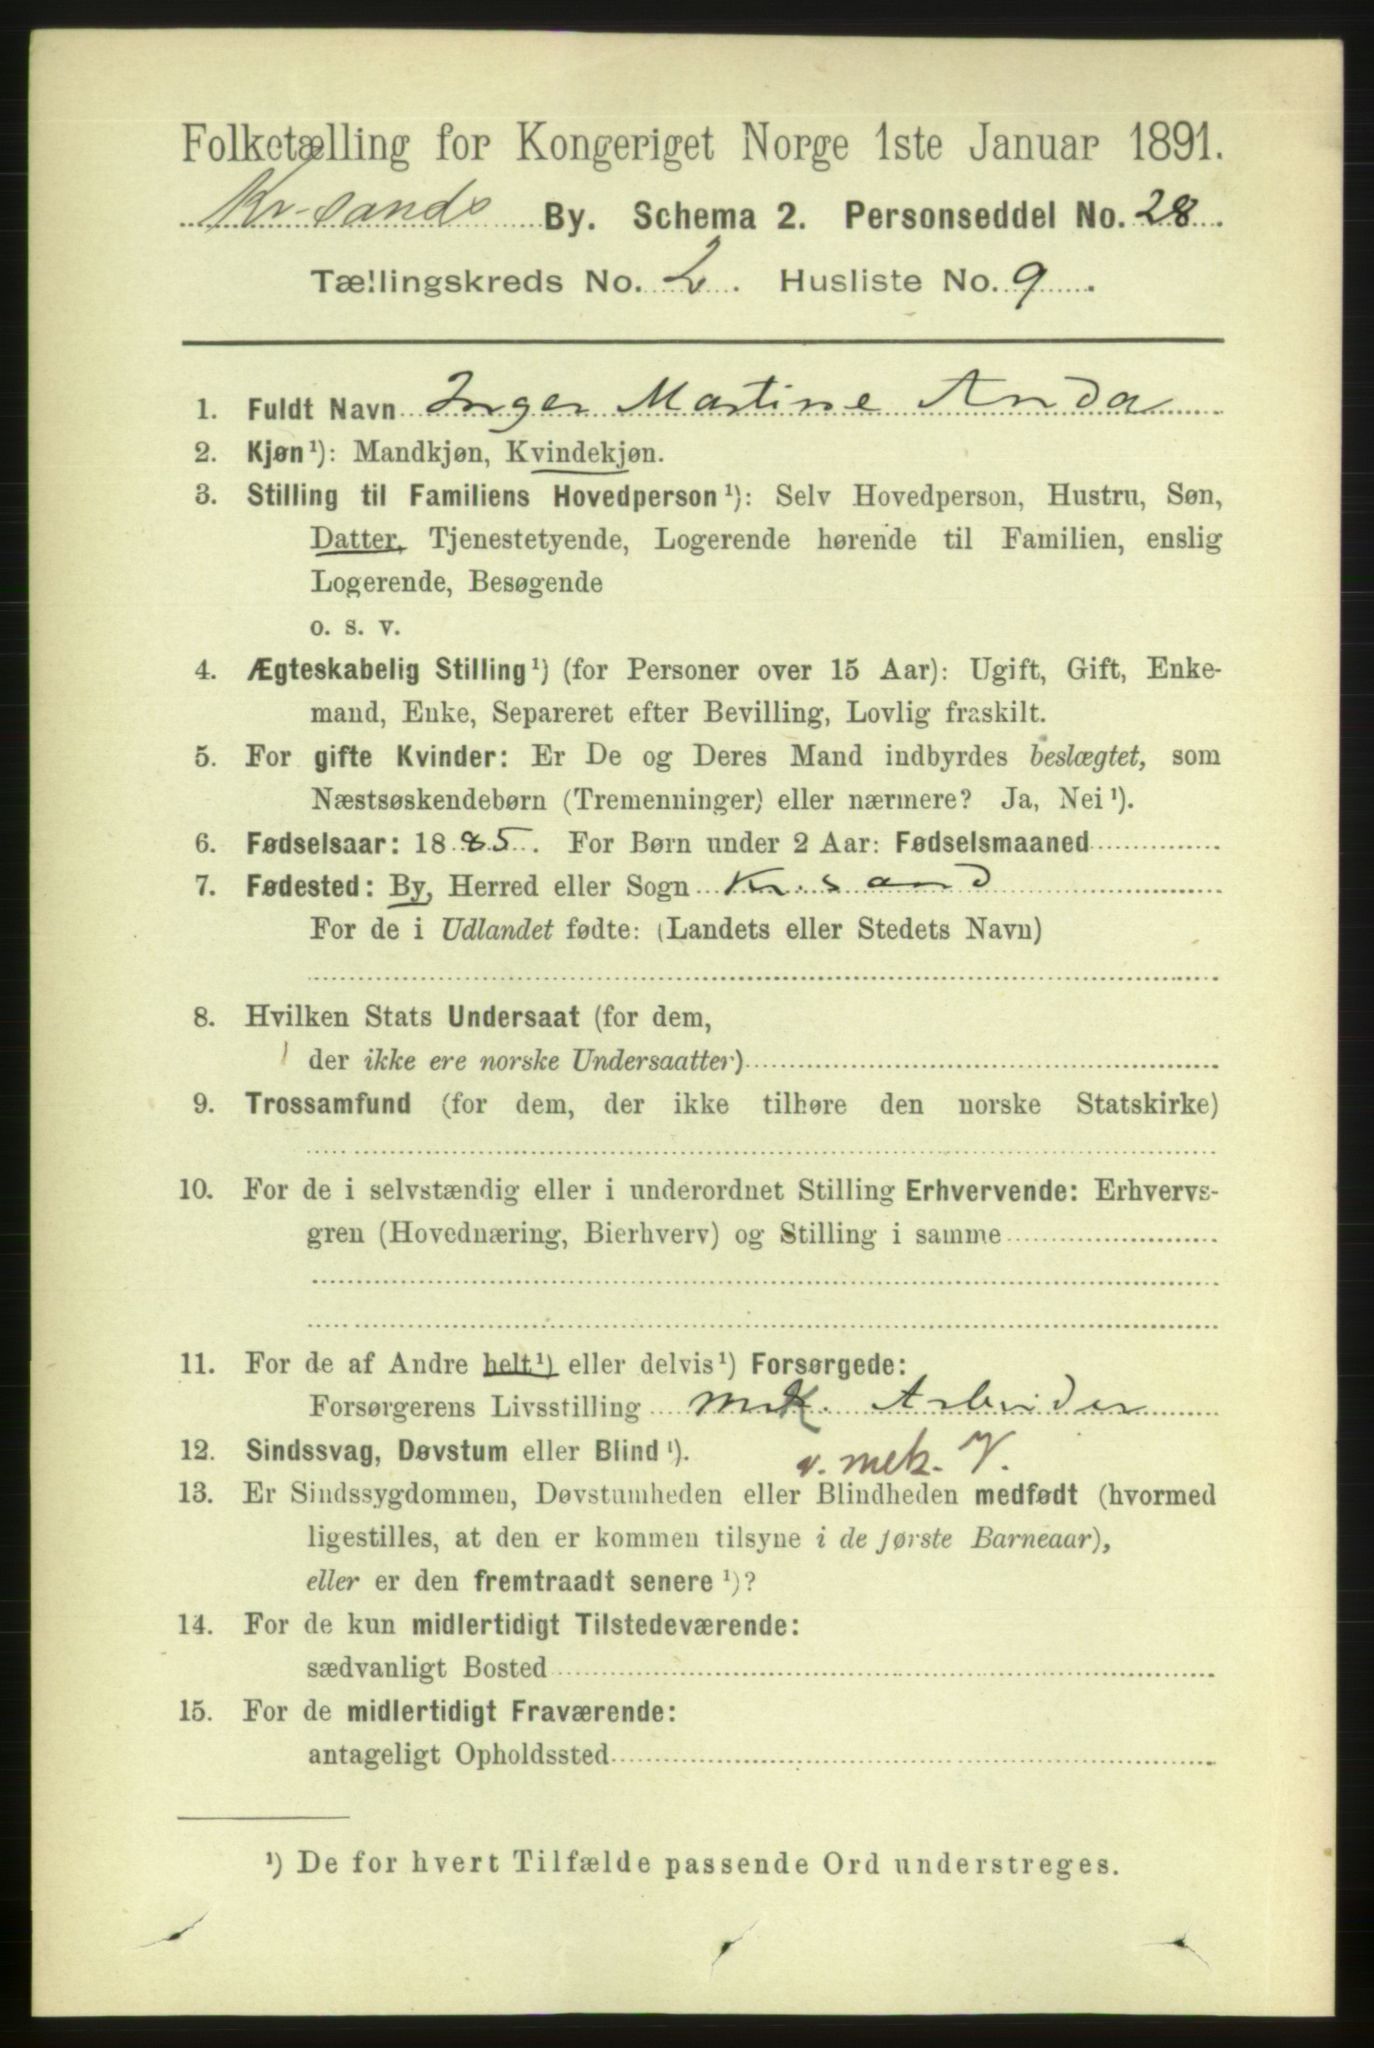 Folketælling for Kongeriget Norge 1ste Januar 1891.
Kr-sands By. Schema 2. Personseddel No. 28.
Tællingskreds No. 2. Husliste No. 9.
1. Fuldt Navn Inger Martine Anda
2. Kjøn¹): Mandkjøn, Kvindekjøn.
3. Stilling til Familiens Hovedperson¹): Selv Hovedperson, Hustru, Søn,
Datter, Tjenestetyende, Logerende hørende til Familien, enslig
Logerende, Besøgende
o. s. v.
4. Ægteskabelig Stilling¹) (for Personer over 15 Aar): Ugift, Gift, Enke-
mand, Enke, Separeret efter Bevilling, Lovlig fraskilt.
5. For gifte Kvinder: Er De og Deres Mand indbyrdes beslægtet, som
Næstsøskendebørn (Tremenninger) eller nærmere? Ja, Nei¹).
6. Fødselsaar: 1885. For Børn under 2 Aar: Fødselsmaaned
7. Fødested: By, Herred eller Sogn Kr.sand
For de i Udlandet fødte: (Landets eller Stedets Navn)
8. Hvilken Stats Undersaat (for dem,
der ikke ere norske Undersaatter)
9. Trossamfund (for dem, der ikke tilhøre den norske Statskirke)
10. For de i selvstændig eller i underordnet Stilling Erhvervende: Erhvervs-
gren (Hovednæring, Bierhverv) og Stilling i samme
11. For de af Andre helt¹) eller delvis¹) Forsørgede:
Forsørgerens Livsstilling mek. Arbeider
12. Sindssvag, Døvstum eller Blind¹). v. mek. V.
13. Er Sindssygdommen, Døvstumheden eller Blindheden medfødt (hvormed
ligestilles, at den er kommen tilsyne i de første Barneaar),
eller er den fremtraadt senere¹)?
14. For de kun midlertidigt Tilstedeværende:
sædvanligt Bosted
15. For de midlertidigt Fraværende:
antageligt Opholdssted
¹) De for hvert Tilfælde passende Ord understreges.